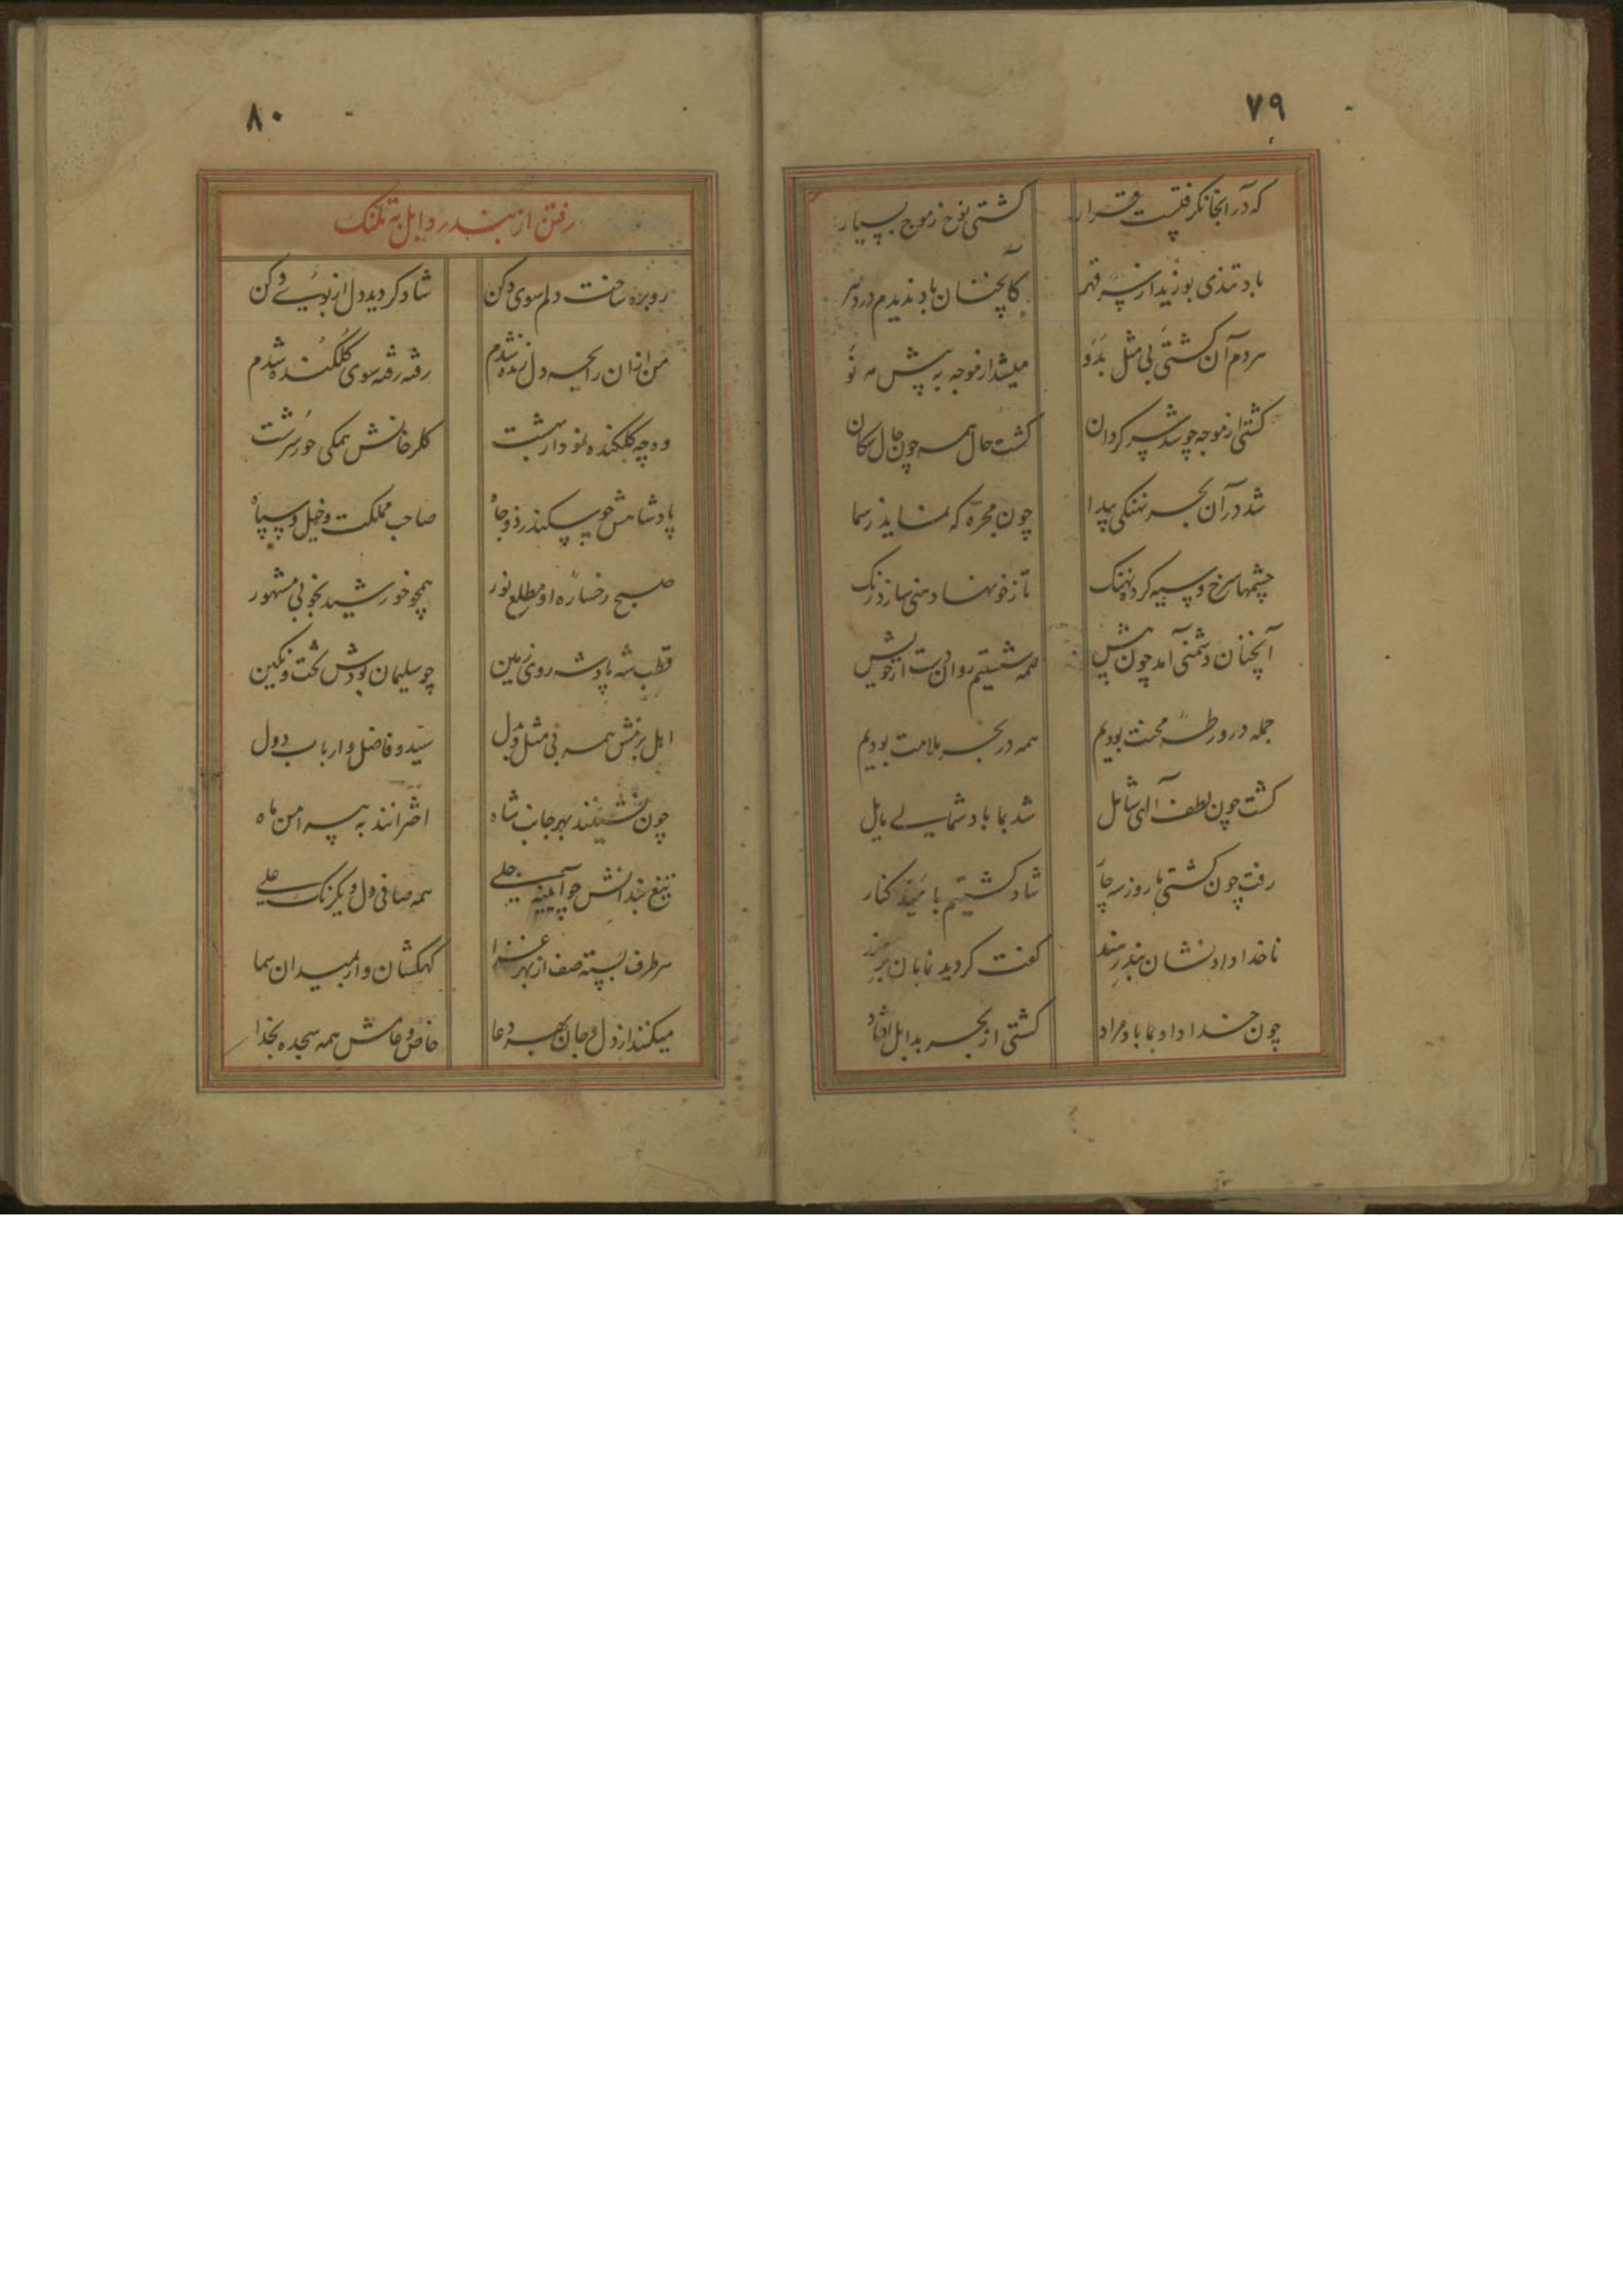 ۷۹
که در آنجا نگرفتست قرار کشتی نوح ز موج بسیار
باد تندی بوزید از سر قهر کانچنان باد ندیدم در دهر
مردم آن کشتی بی مثل بدو میشد از موجه به پیش مه نو
کشتی از موجه چو شد سر کردان کشت حال همه چون حال سکان
شد در آن بحر نهنکی پیدا چون مجره که نماید ز سما
چشمها سرخ و سیه کرده نهنک تا ز خونها دهنی سازد رنک
آنچنان دشمنی آمد چون پیش همه شستیم روان دست از خویش
جمله در ورطهٔ محنت بودیم همه در بحر ملامت بودیم
کشت چون لطف آلهی شامل شد بما باد شمالی مایل
رفت چون کشتی ما روزی چار شاد کشتیم بامید کنار
ناخدا داد نشان بندر سند کفت کردید نمایان بر هند
چون خدا داد بما باد مراد کشتی از بحر بدابل افتاد
۸۰
رفتن از بندر دابل به تلنک
رو بره ساخت دلم سوی دکن شاد کردید دل از بوی دکن
من از ان رایحه دل زنده شدم رفته رفته سوی کلکنده شدم
وه چه کلکنده نمودار بهشت کلرخانش همکی حور سرشت
پادشاهش چو سکندر ذو جاه صاحب مملکت و خیل و سپاه
صبح رخساره او مطلع نور همچو خورشید بخوبی مشهور
قطب شه پادشه روی زمین چو سلیمان بودش تخت و نکین
اهل بزمش همه بی مثل و بدل سید و فاضل و ارباب دول
چون نشینند بهر جانب شاه اخترانند به پیرامن ماه
تیغ بندانش چو آیینه جلی همه صافی دل و یکرنک علی
هر طرف بسته صف از بهر غزا کهکشان وار بمیدان سما
میکنند از دل و جان بهر دعا خاص و عامش همه سجده بخدا